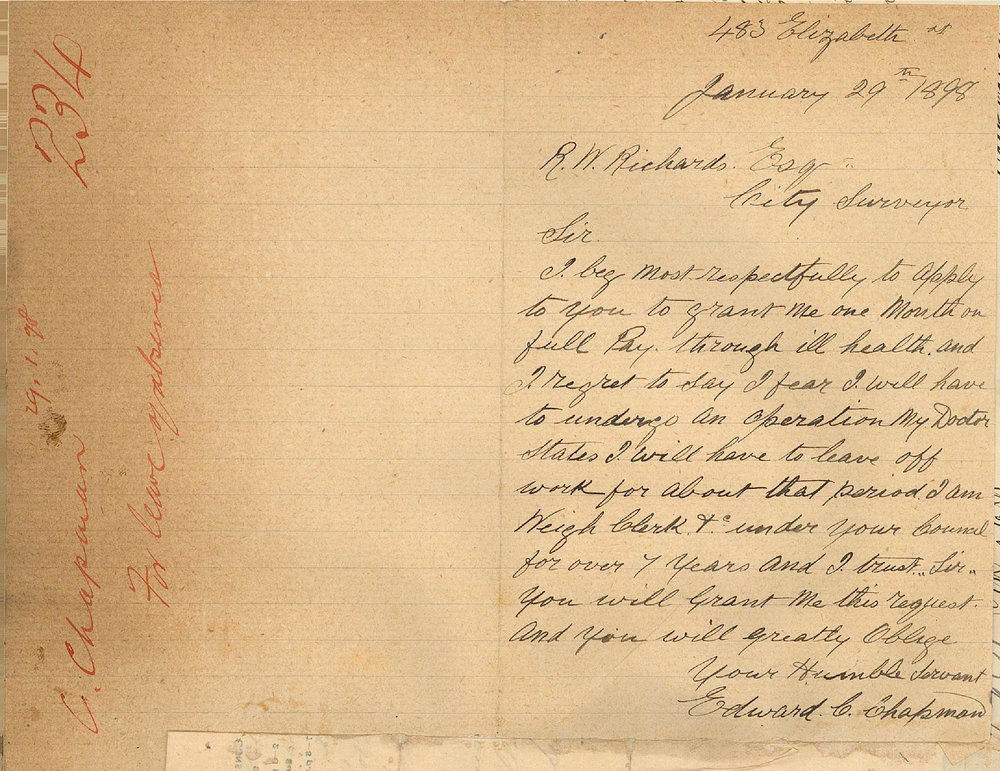 483 Elizabeth st
January 29th 1898
R. W. Richards. Esq
City Surveyor
Sir.
I beg most respectfully to Apply
to you to grant me one Month on
full Pay. through ill health. and
I regret to say I fear I will have
to undergo an Operation My Doctor
States I will have to leave off
work for about that period I am
Weigh Clerk &c under your Council
for over 7 Years and I trust.. Sir..
You will Grant Me this request.
And you will greatly Oblige
Your Humble Servant
Edward. C. Chapman
234
29.1.98
C. Chapman
For leave of absence